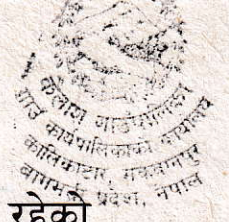 कैलाश गाउँपालिका
गाउँ कार्यपालिकाको कार्यालय
कालिकाटार, मकवानपुर
प्रदेश, नेपाल
रहेको